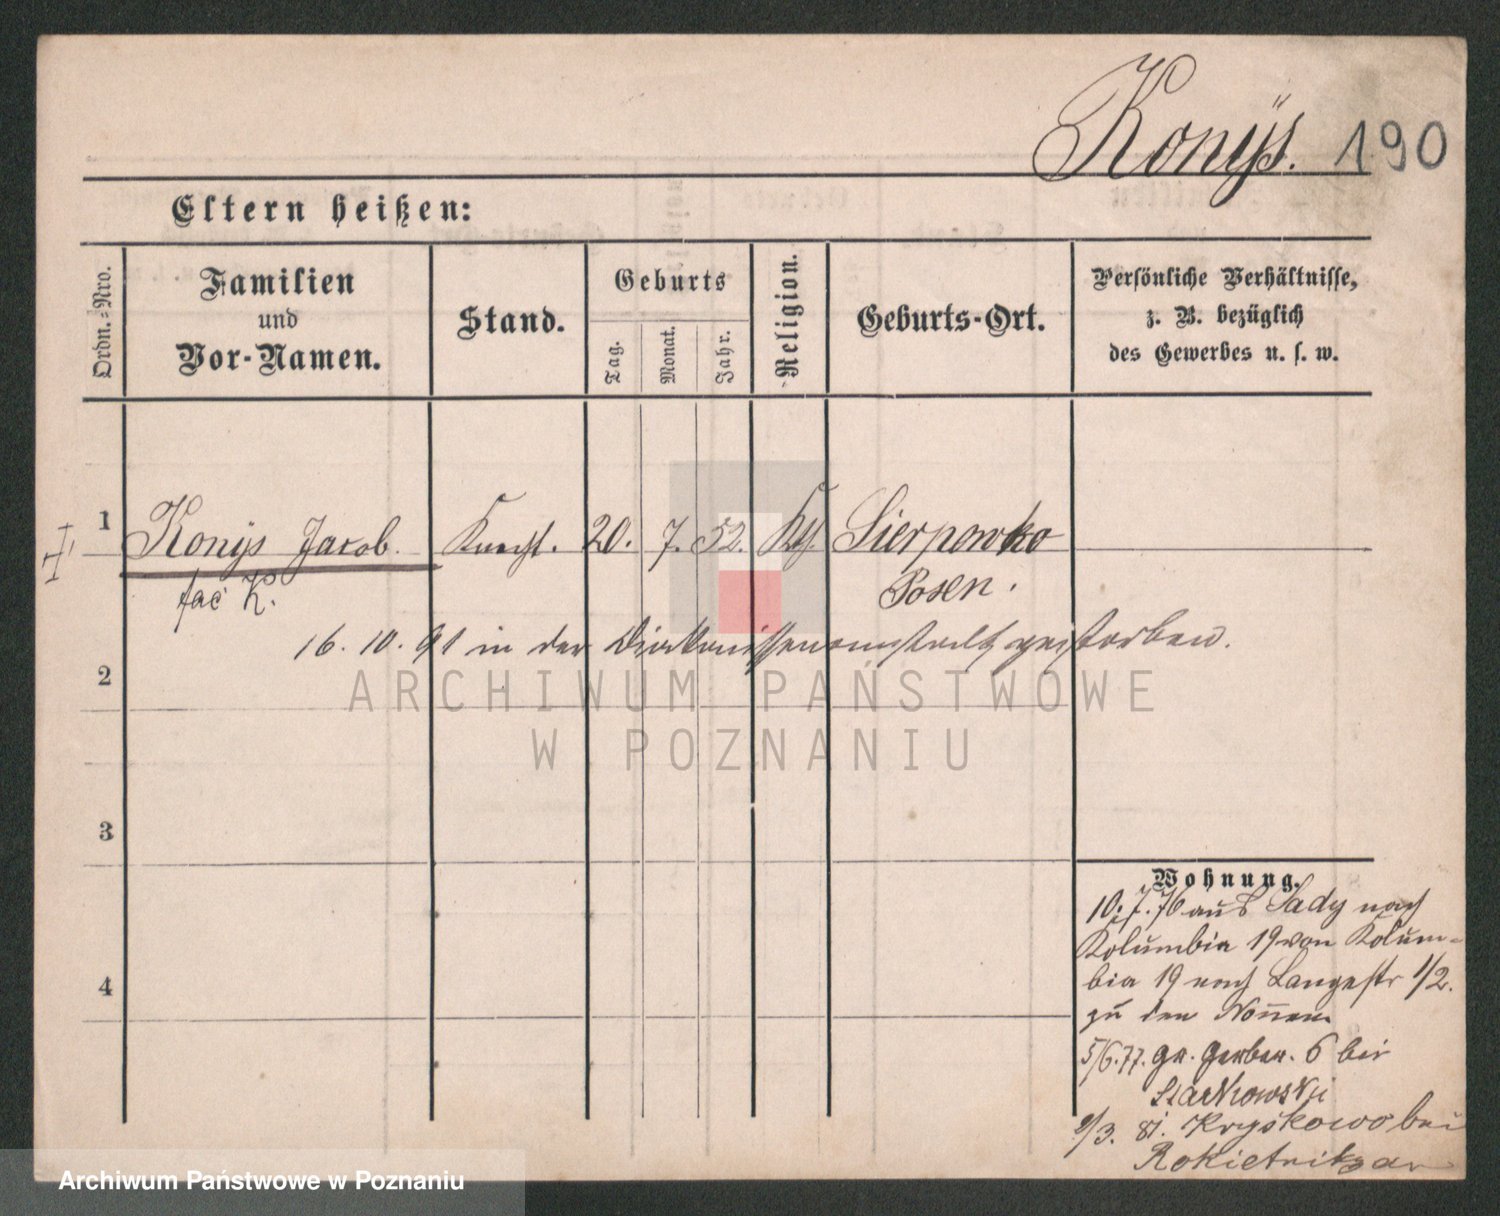 Konÿs. 190
Eltern heißen:
Ordn.-Nro.
Familien
und
Vor-Namen.
Stand.
Geburts
Tag.
Monat.
Jahr.
Religion.
Geburts-Ort.
Persönliche Verhältnisse,
z. B. bezüglich
des Gewerbes u. s. w.
1 Konÿs Jacob. Knecht. 20. 7. 52. Kth. Sierpowko
Posen.
16. 10. 91 in der Diakonissenanstalt gestorben.
2
ARCHIWUM PAŃSTWOWE
W POZNANIU
3
4
Wohnung.
10. 7. 76 aus Sady nach
Kolumbia 19 von Kolum-
bia 19 nach Langestr 1/2.
zu den Nonnen
5/6. 77. Gr. Gerber. 6 bei
/3. 81. Kryskowo bei
Rokietnitza
Archiwum Państwowe w Poznaniu